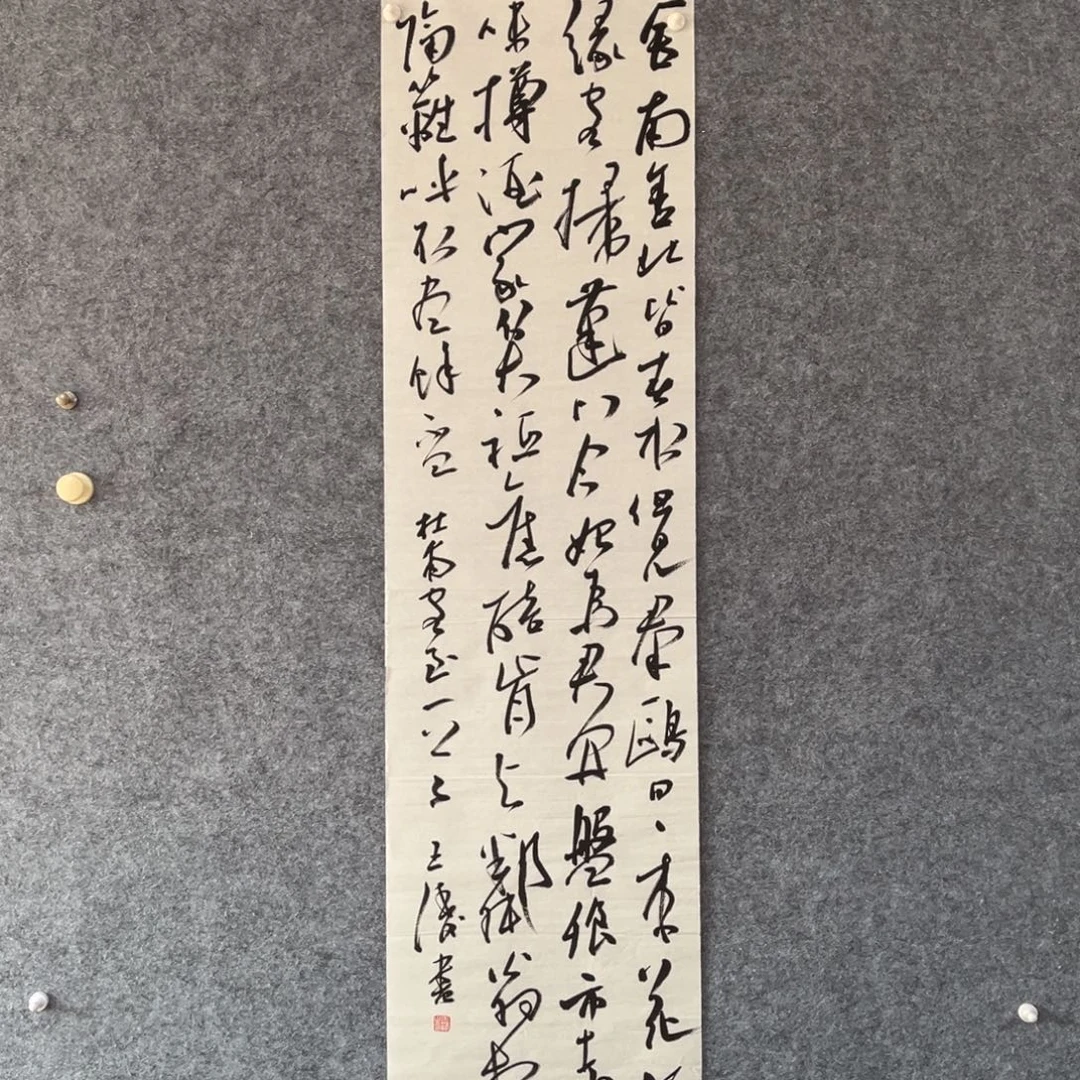 舍南舍北皆春水但見羣鷗日、来花
緣客掃蓬門今始為君開盤飧市遠
味樽酒家貧祗舊醅肯與鄰翁相
隔籬呼取盡餘杯 杜甫客至一 王 書